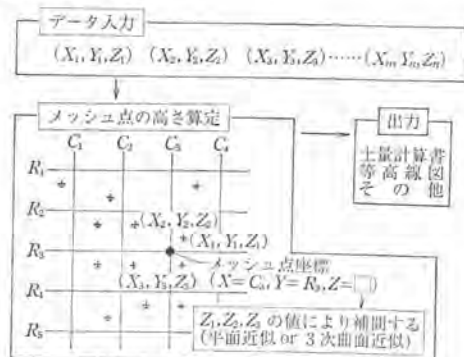 データ入力
(X₁,Y₁,Z₁) (X₂,Y₂,Z₂) (X₃,Y₃,Z₃)……(Xₙ,Yₙ,Zₙ)
メッシュ点の高さ算定
出力
土量計算書
等高線図
その他
C₁ C₂ C₃ C₄
R₁
R₂
(X₂,Y₂,Z₂)
(X₁,Y₁,Z₁)
R₃
メッシュ点座標
(X₃,Y₃,Z₃) (X=C₃,Y=R₃,Z=□)
R₄
Z₁,Z₂,Z₃の値により補間する
(平面近似 or 3次曲面近似)
R₅